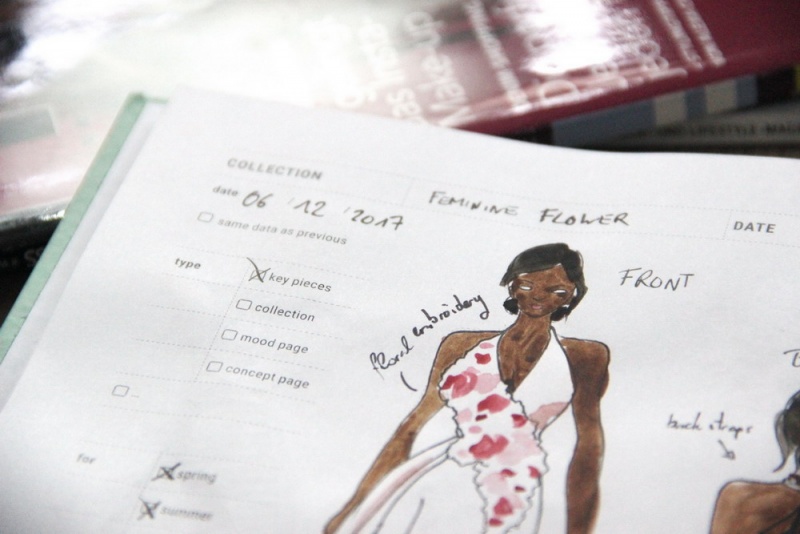 COLLECTION
date 06 / 12 / 2017
FEMININE FLOWER
DATE
same data as previous
type
key pieces
FRONT
collection
floral embroidery
mood page
concept page
back straps
for
spring
summer
Make-up
LIFESTYLE